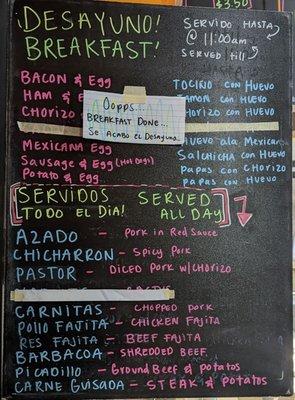 $3.50
¡DESAYUNO!
BREAKFAST!
SERVIDO HASTA
@ 11:00am
SERVED till
BACON & Egg
TOCINO con Huevo
HAM & E
AMON con Huevo
CHORIZO
CHORIZO con Huevo
Oopps...
BREAKFAST DONE...
Se Acabo el Desayuno
MEXICANA Egg
Huevo ala Mexican
SAUSAGE & Egg (Hot Dogs)
SALCHICHA con Huevo
PAPAS con CHORIZO
POTATO & Egg
PAPAS con HUEVO
SERVIDOS SERVED
TODO EL DIA! ALL DAY
AZADO - Pork in Red Sauce
CHICHARRON - Spicy Pork
PASTOR - DICED PORK W/CHORIZO
CARNITAS - CHOPPED PORK
Pollo FAJITA - CHICKEN FAJITA
RES FAJITA - BEEF FAJITA
BARBACOA - SHREDDED BEEF
PICADILLO - Ground Beef & Potatos
CARNE GUISADA - STEAK & POTATOS